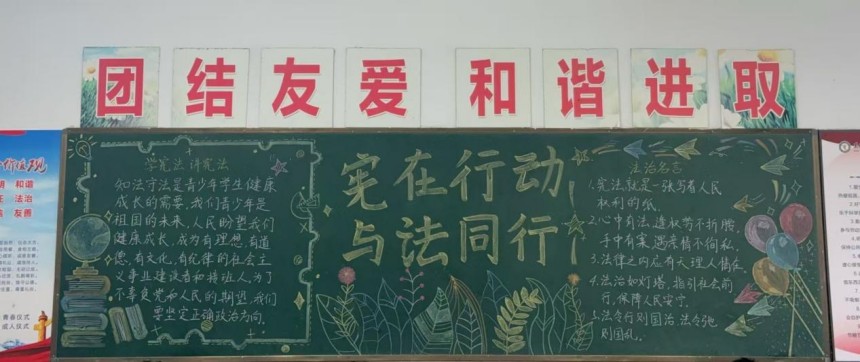 团结友爱 和谐进取
学宪法 讲宪法
知法守法是青少年学生健康
成长的需要,我们青少年是
祖国的未来,人民盼望我们
健康成长,成为有理想,有道
德,有文化,有纪律的社会主
义事业建设者和接班人,为了
不辜负党和人民的期望,我们
要坚定正确政治方向.
宪在行动
与法同行
法治名言
1.宪法就是一张写着人民
权利的纸.
2.心中有法,遇权势不折腾,
手中有案,遇亲情不徇私.
3.法律之内,应有天理人情在.
4.法治如灯塔,指引社会前
行,保障人民安宁.
5.法令行则国治,法令弛
则国乱.
和谐
法治
友善
青春仪式
成人仪式